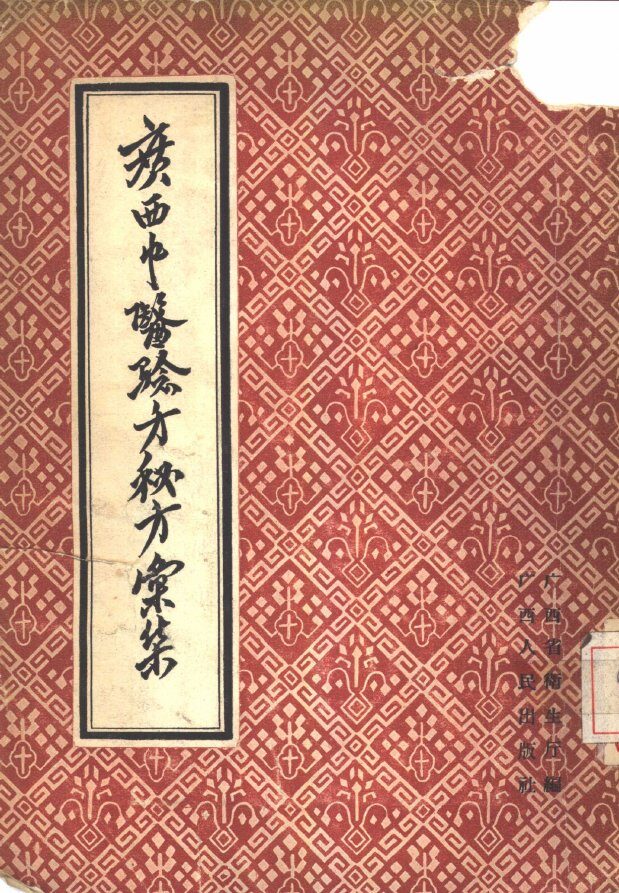 廣西中醫驗方秘方彙集
广西省衛生厅編
广西人民出版社